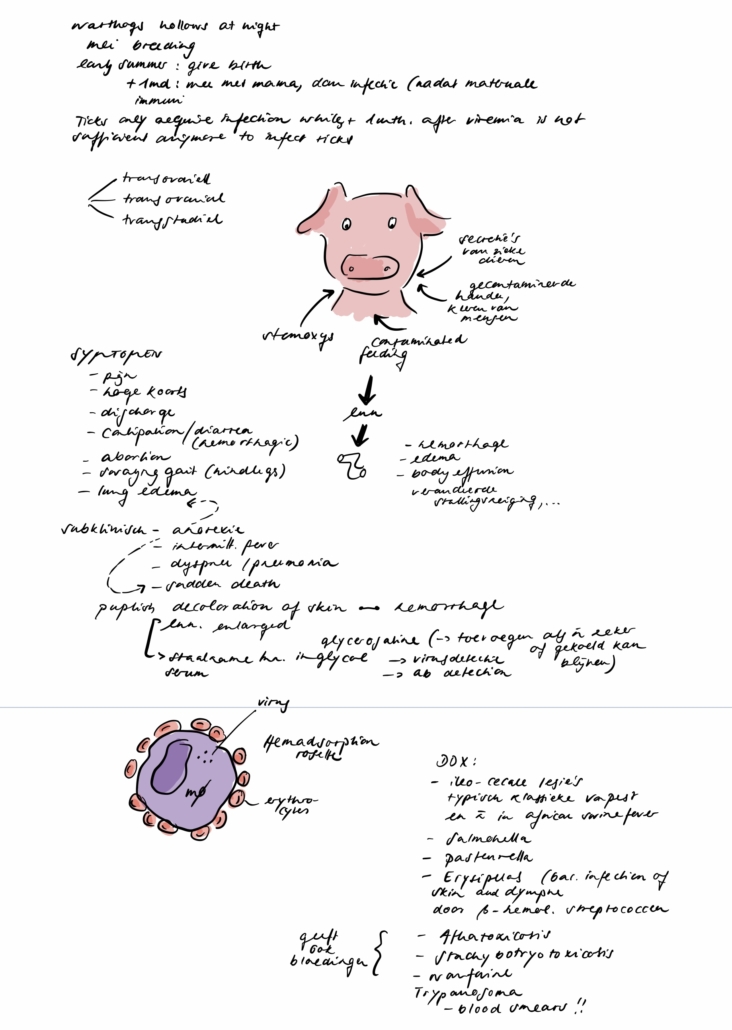 warthogs hollows at night
mei breeding
early summer : give birth
+ 1md : mee met mama, dan infectie (nadat maternale
immuni
Ticks only acquire infection while + 1mth. after viremia is not
sufficient anymore to infect ticks
transovarieel
transovarial
transstadiel
secretie's
van zieke
dieren
gecontamineerde
handen,
kleren van
mensen
stomoxys
contaminated
feeding
lnn
SYMPTOMEN
- pijn
- hoge koorts
- discharge
- constipation/diarree
(hemorrhagic)
- abortion
- swaying gait (hindlegs)
- lung edema
- hemorrhage
- edema
- body effusion
veranderde
stollingsneiging, ...
subklinisch - anorexie
- intermitt. fever
- dyspnee / pneumonia
- sudden death
purplish decoloration of skin → hemorrhage
lnn. enlarged
glycerosaline (-> toevoegen als ñ zeker
of gekoeld kan
blijven)
-> staalname lnn. in glycol -> virusdetectie
serum -> ab detection
virus
Hemadsorption
rosette
mø
erythro-
cytes
DDX :
- ileo-cecale lesie's
typisch klassieke varkenspest
en ñ in african swine fever
- Salmonella
- pasteurella
- Erysipelas (bac. infection of
skin and lymphe
door β-hemol. streptococcen
geeft
ook
bloedingen
- Aflatoxicosis
- stachybotryotoxicosis
- warfarine
Trypanosoma
- blood smears !!